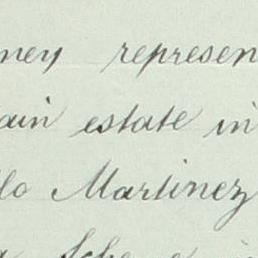 ney represen
ain estate in
lo Martinez